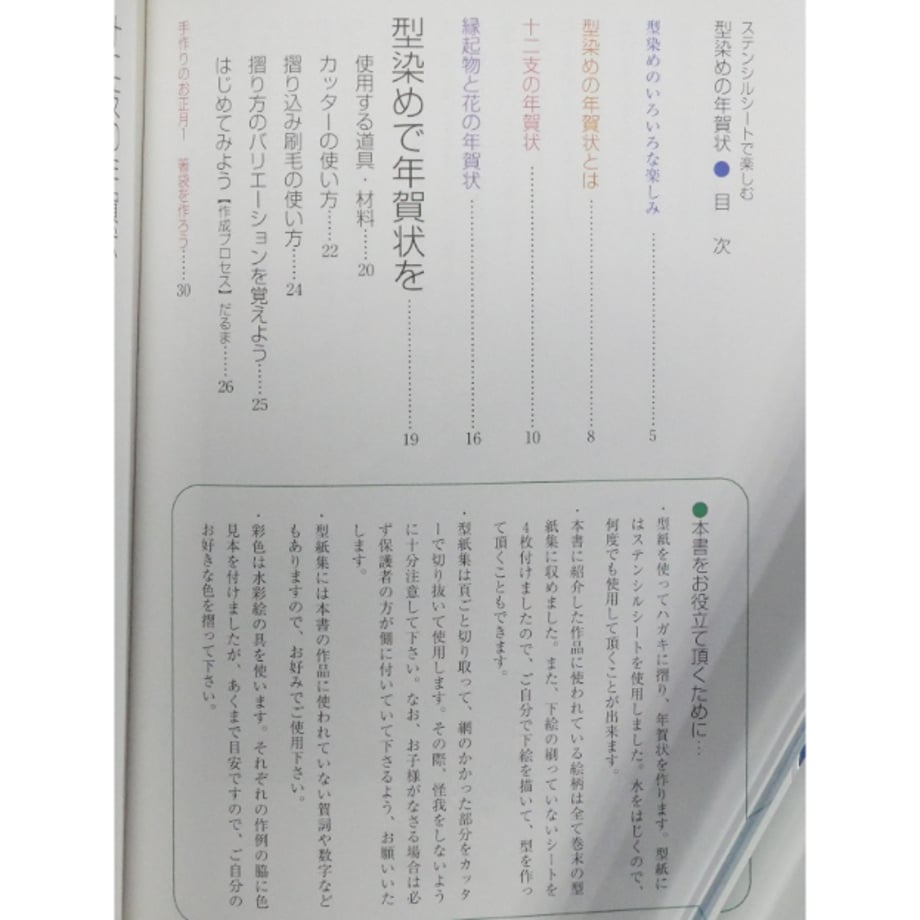 ステンシルシートで楽しむ
型染めの年賀状●目 次
型染めのいろいろな楽しみ……………………5
型染めの年賀状とは……………………8
十二支の年賀状……………………10
縁起物と花の年賀状……………………16
型染めで年賀状を……………19
使用する道具・材料……20
カッターの使い方……22
摺り込み刷毛の使い方……24
摺り方のバリエーションを覚えよう……25
はじめてみよう【作成プロセス】だるま……26
手作りのお正月ー 箸袋を作ろう……30
●本書をお役立て頂くために…
・型紙を使ってハガキに摺り、年賀状を作ります。型紙に
はステンシルシートを使用しました。水をはじくので、
何度でも使用して頂くことが出来ます。
・本書に紹介した作品に使われている絵柄は全て巻末の型
紙集に収めました。また、下絵の刷っていないシートを
4枚付けましたので、ご自分で下絵を描いて、型を作っ
て頂くこともできます。
・型紙集は頁ごと切り取って、網のかかった部分をカッタ
ーで切り抜いて使用します。その際、怪我をしないよう
に十分注意して下さい。なお、お子様がなさる場合は必
ず保護者の方が側に付いていて下さるよう、お願いいた
します。
・型紙集には本書の作品に使われていない賀詞や数字など
もありますので、お好みでご使用下さい。
・彩色は水彩絵の具を使います。それぞれの作例の脇に色
見本を付けましたが、あくまで目安ですので、ご自分の
お好きな色を摺って下さい。